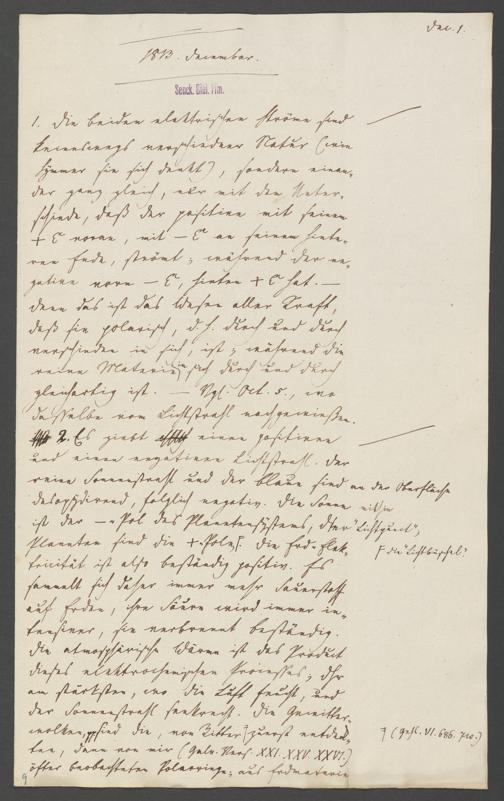 Dec. 1.
1813. December.
Senck. Bibl. Ffm.
1. Die beiden elektrischen Ströme sind
keineswegs verschiedener Natur (wie
Sömmer sie sich denkt), sondern einan-
der ganz gleich, nur mit dem Unter-
schiede, daß der positive mit seinem
+ E vorne, mit – E an seinem hinte-
ren Ende, strömt; während der ne-
gative vorn – E, hinten + E hat. —
denn das ist das Wesen aller Kraft,
daß sie polarisch, d. h. durch und durch
verschieden in sich, ist; während die
reine Materie in sich durch und durch
gleichartig ist. — Vgl. Oct. 5., wo
dasselbe vom Lichtstrahl nachgewiesen.
2. Es giebt einen positiven
und einen negativen Lichtstrahl. Der
reine Sonnenstrahl und der blaue sind an der Oberfläche
desoxydirend, folglich negativ. Die Sonne
ist der – Pol des Planetensystems, der "Lichtpunct",
Planeten sind die + Pole, die "Lichtbüschel". Die Erd-Elek-
tricität ist also beständig positiv. Es
sammelt sich daher immer mehr Sauerstoff
auf Erden, ihre Säure wird immer in-
tensiver, sie verbrennt beständig.
Die atmosphärische Wärme ist das Product
dieses elektrochemischen Processes; dhr
am stärksten, wo die Luft feucht, und
der Sonnenstrahl senkrecht. Die Gewitter-
wolken sind die, von Ritter zuerst entdek- (Gehl. VI. 686. 720.)
ten, dann von mir (Galv. Vers. XXI. XXV. XXVI.)
öfter beobachteten Polarringe; aus
9